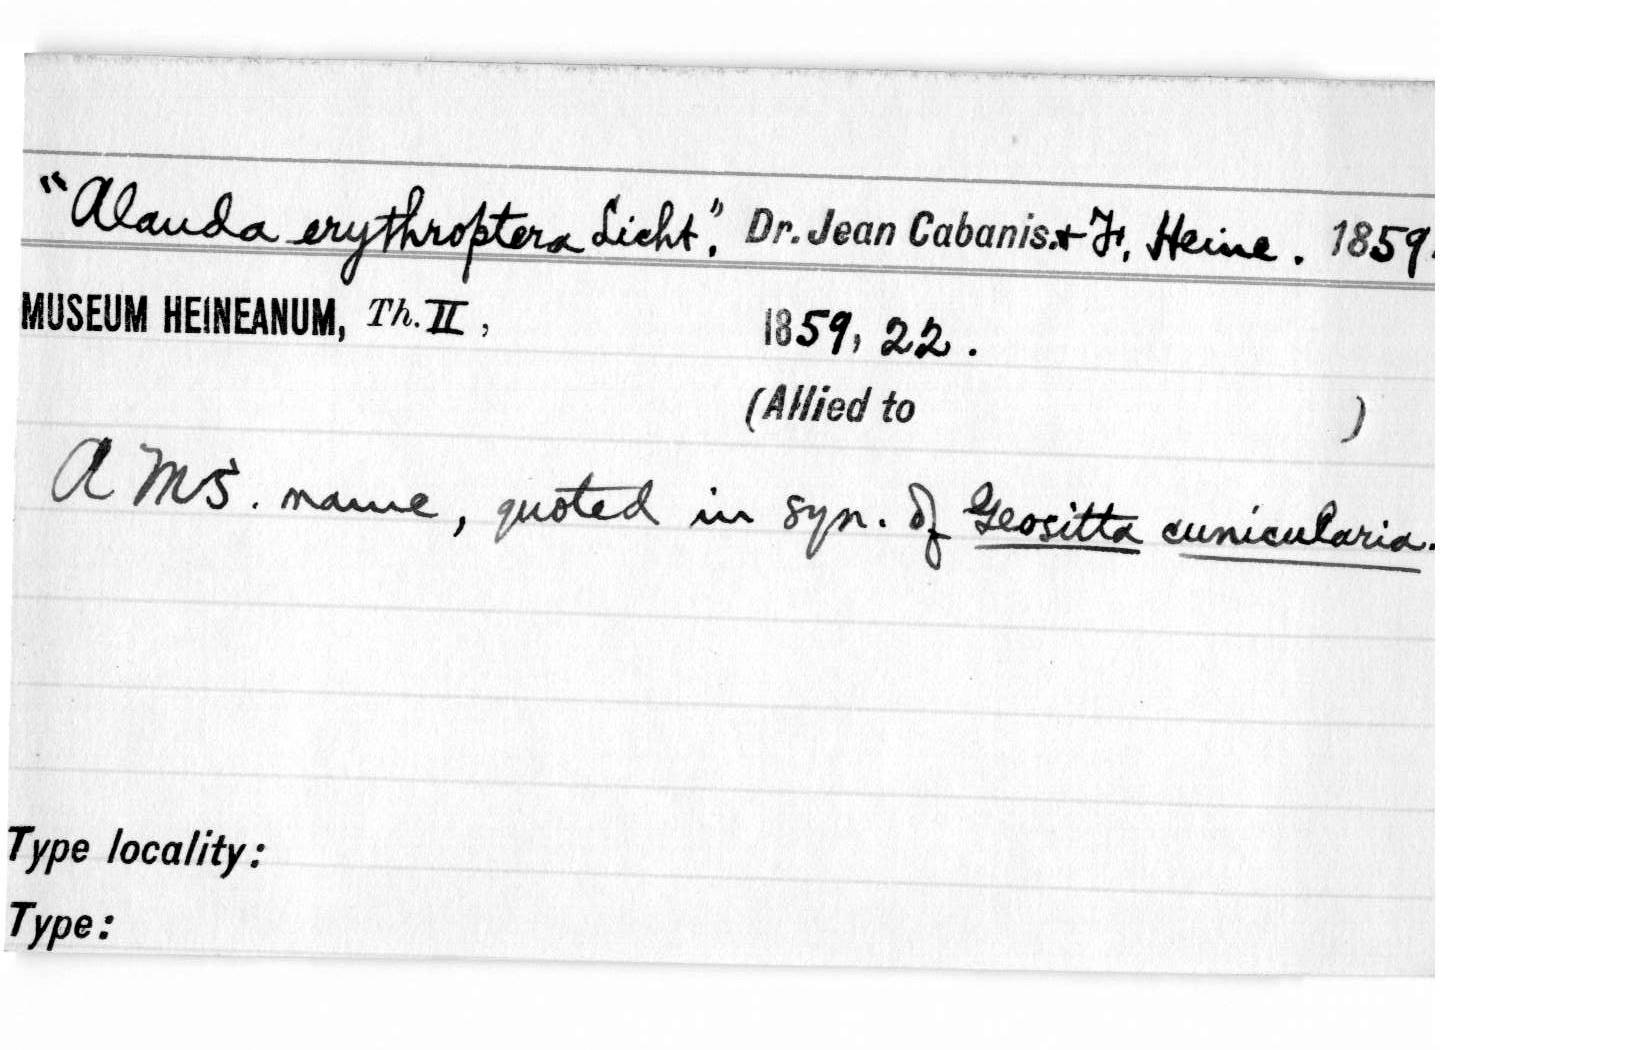 "Alauda erythroptera Licht.", Dr. Jean Cabanis. + F. Heine. 1859.
MUSEUM HEINEANUM, Th. II, 1859, 22.
(Allied to )
A MS. name, quoted in syn. of Geositta cunicularia.
Type locality:
Type: